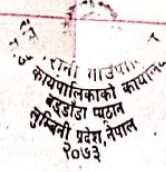 रानी गाउँपा
कार्यपालिकाको कार्यालय
बहुडाँडा प्यूठान
लुम्बिनी प्रदेश, नेपाल
२०७३